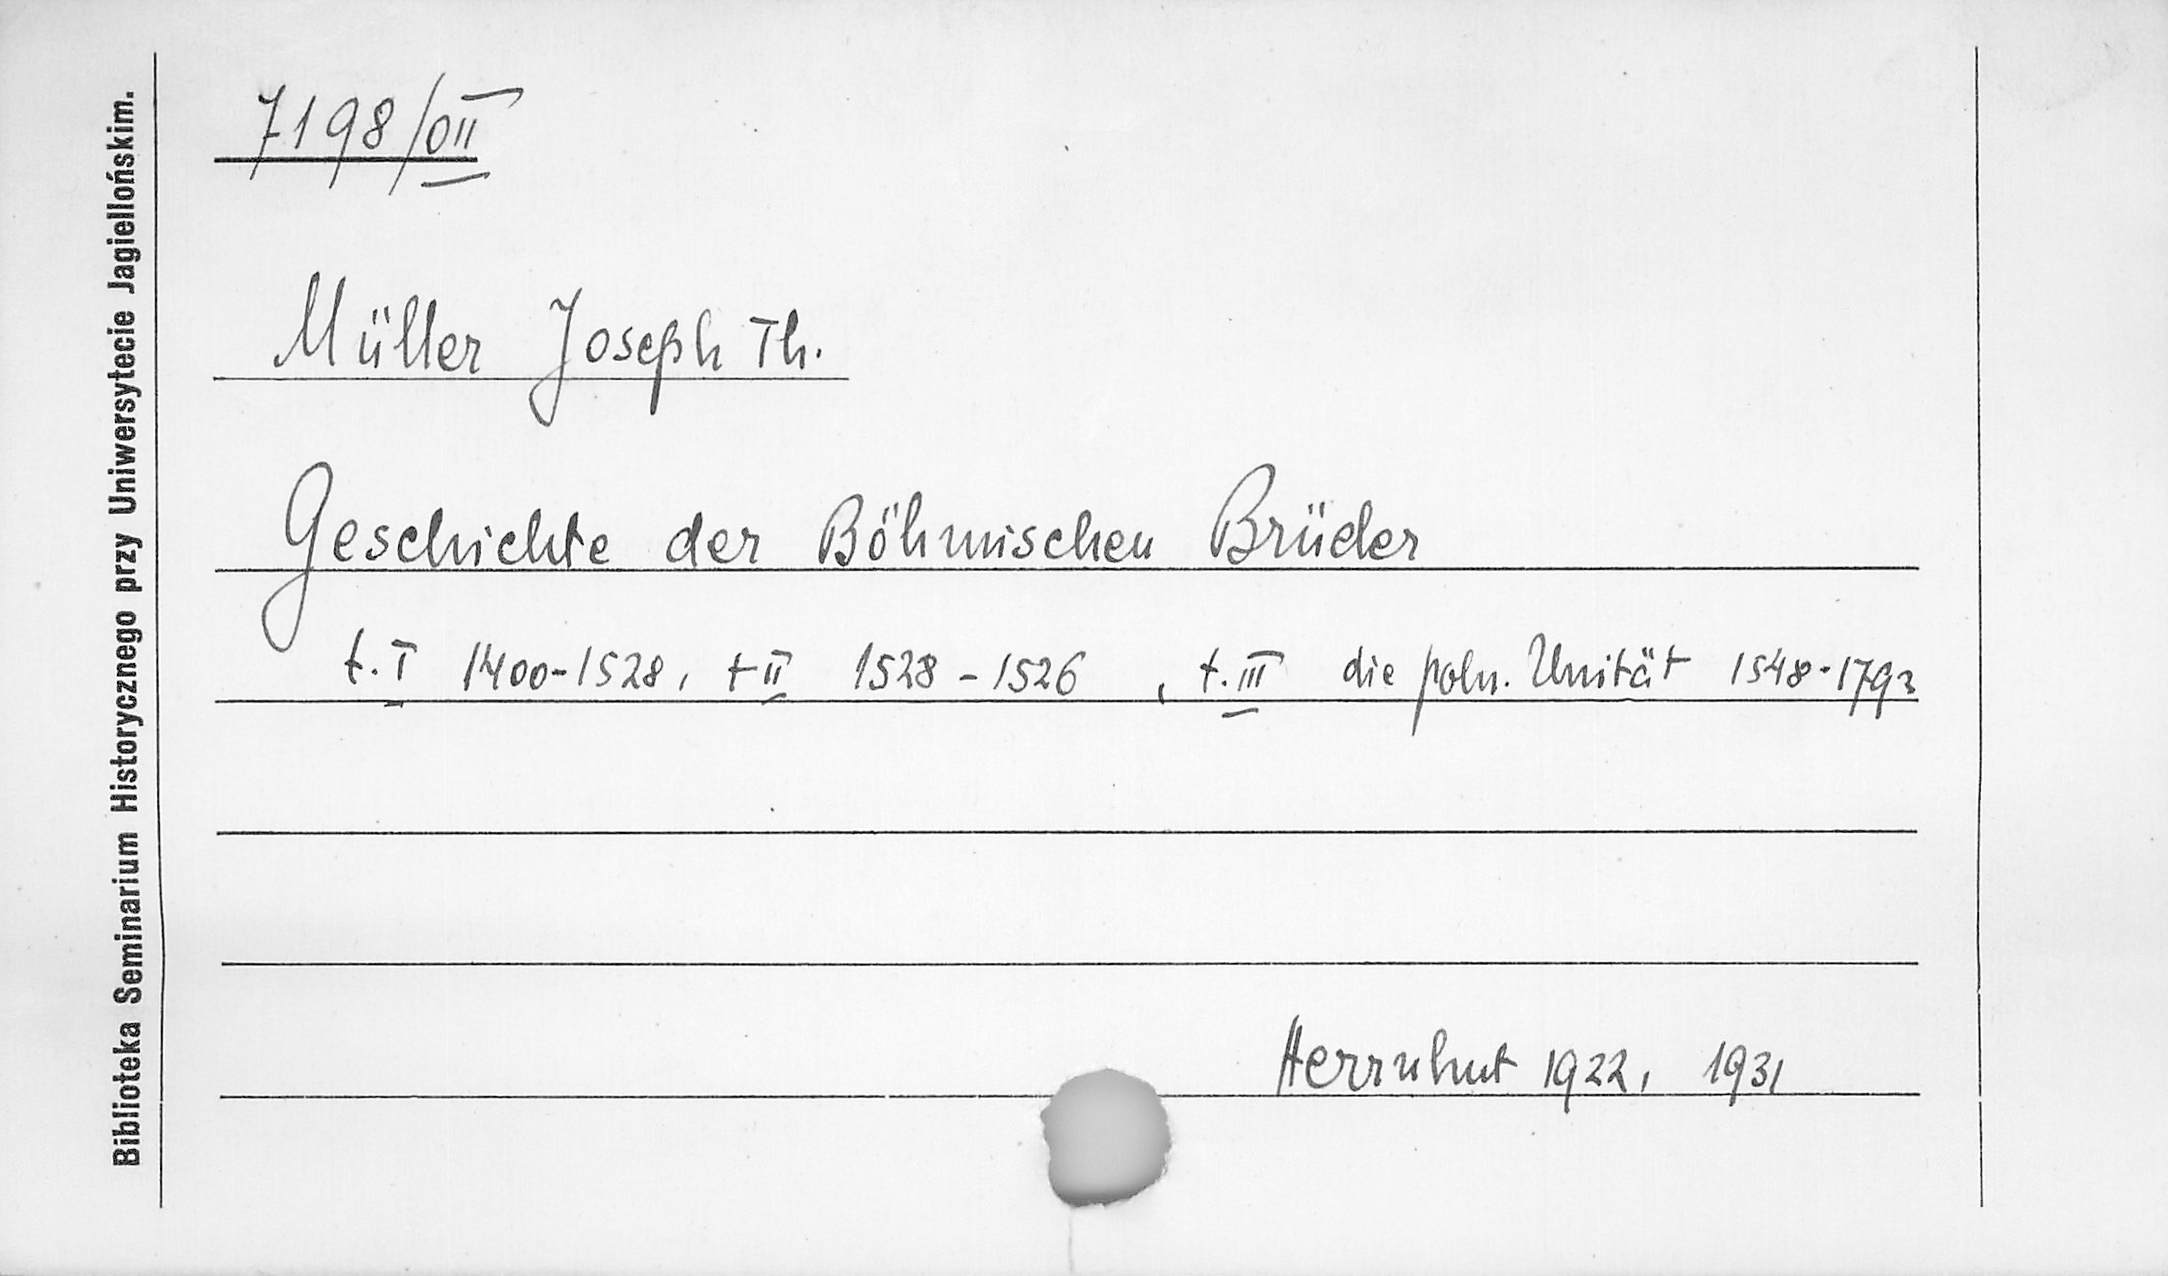 7198/OII
Müller Joseph Th.
Geschichte der Böhmischen Brüder
t. I 1400-1528, t II 1528-1526, t. III die poln. Unität 1548-1793
Herrnhut 1922, 1931
Biblioteka Seminarium Historycznego przy Uniwersytecie Jagiellońskim.